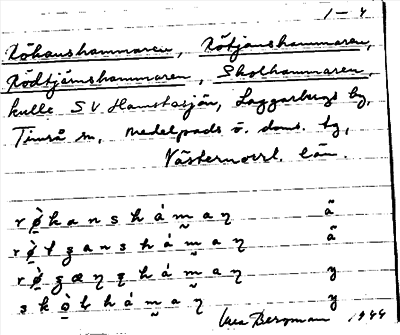 1 – 4
Rökanshammaren, Rötjanshammaren,
Rödtjärnshammaren, Skolhammaren,
kulle SV Hamstasjön, Laggarbergs by,
Timrå sn, Medelpads ö. doms. tg,
Västernorrl. län.
r ọ̀ k a n s h á m̰ a ŋ ã
s k ọ̀ ḷ h á m̰ a ŋ y
Bergman 1944